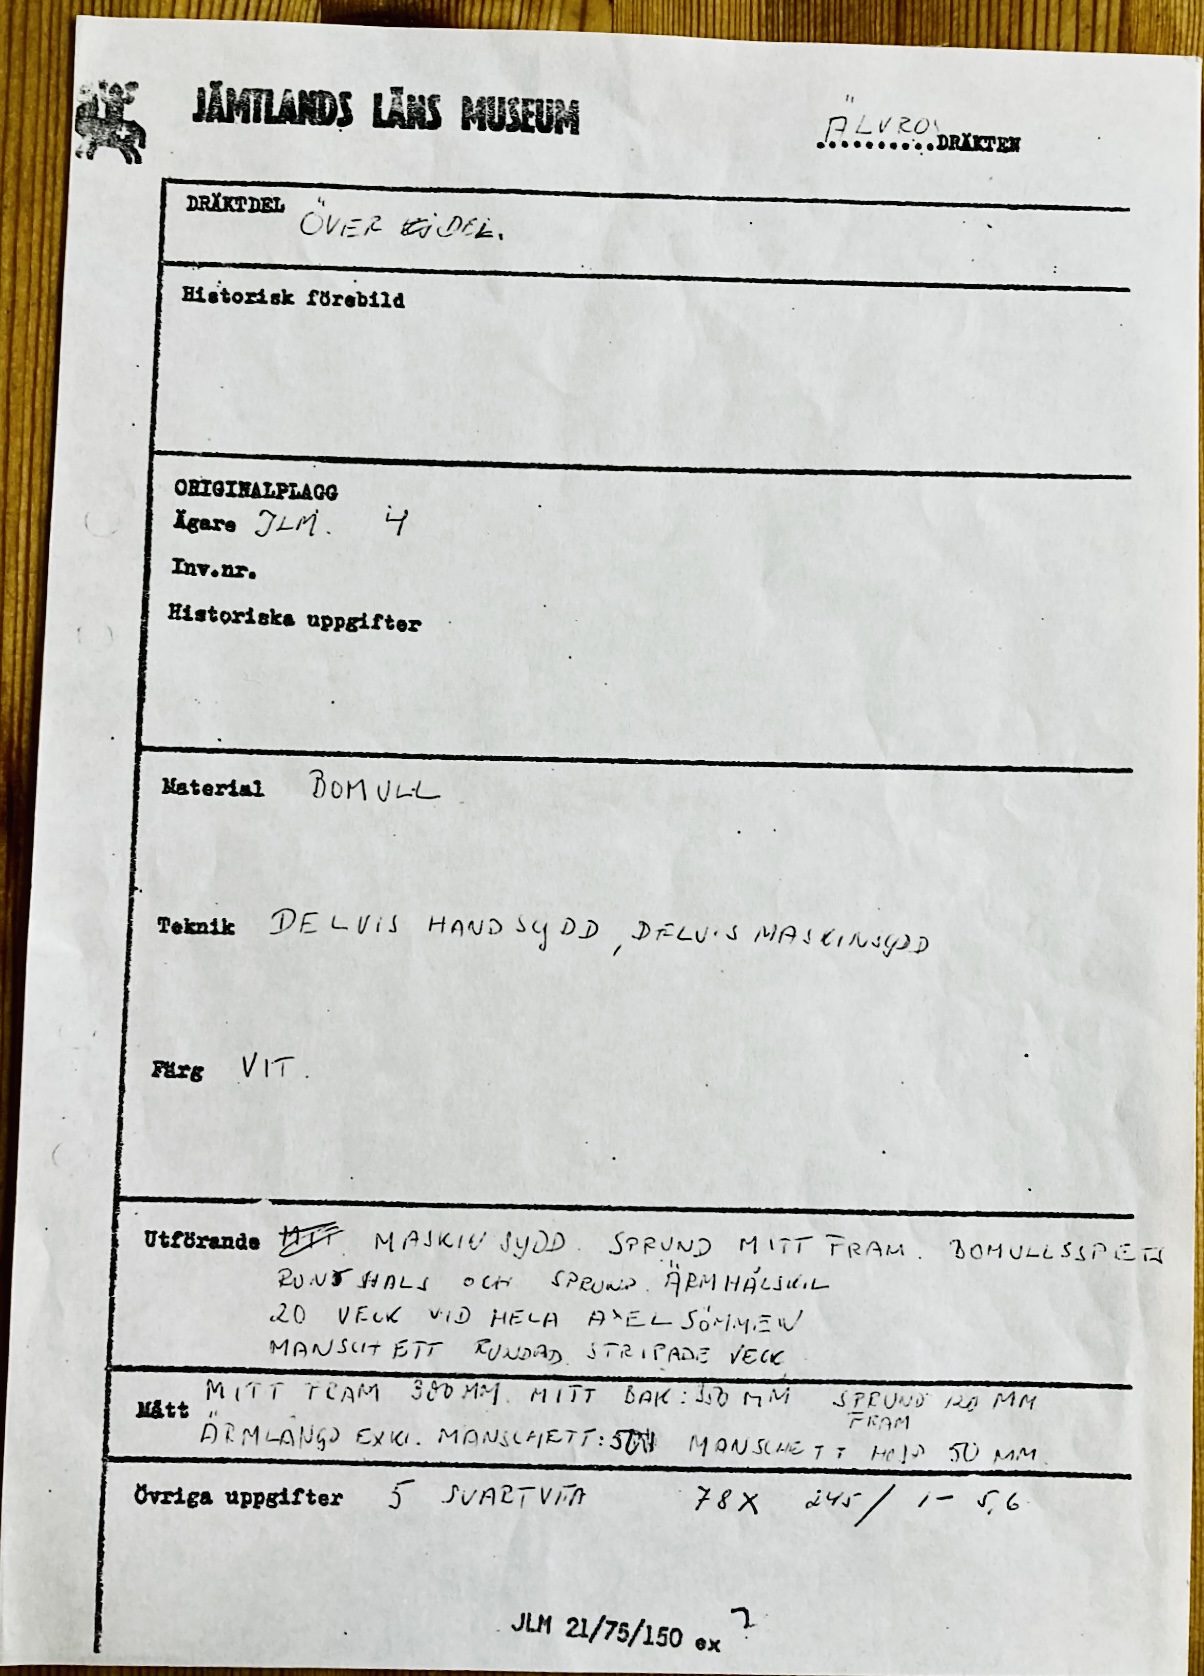 JÄMTLANDS LÄNS MUSEUM
ÄLVROS DRÄKTEN
DRÄKTDEL ÖVERDEL.
Historisk förebild
ORIGINALPLAGG
Ägare JLM. 4
Inv.nr.
Historiska uppgifter
Material BOMULL
Teknik DELVIS HANDSYDD, DELVIS MASKINSYDD
Färg VIT.
Utförande MASKINSYDD. SPRUND MITT FRAM. BOMULLSSPETS
RUNT HALS OCH SPRUND. ÄRMHÅLSKIL
20 VECK VID HELA AXELSÖMMEN
MANSCHETT RUNDAD. STRIPADE VECK
Mått MITT FRAM 380 MM. MITT BAK: MM SPRUND FRAM MM
ÄRMLÄNGD EXKL. MANSCHETT: MANSCHETT HÖJD 50 MM.
Övriga uppgifter 5 SVARTVITA 78X 245/ 1- 5,6
JLM 21/75/150 ex